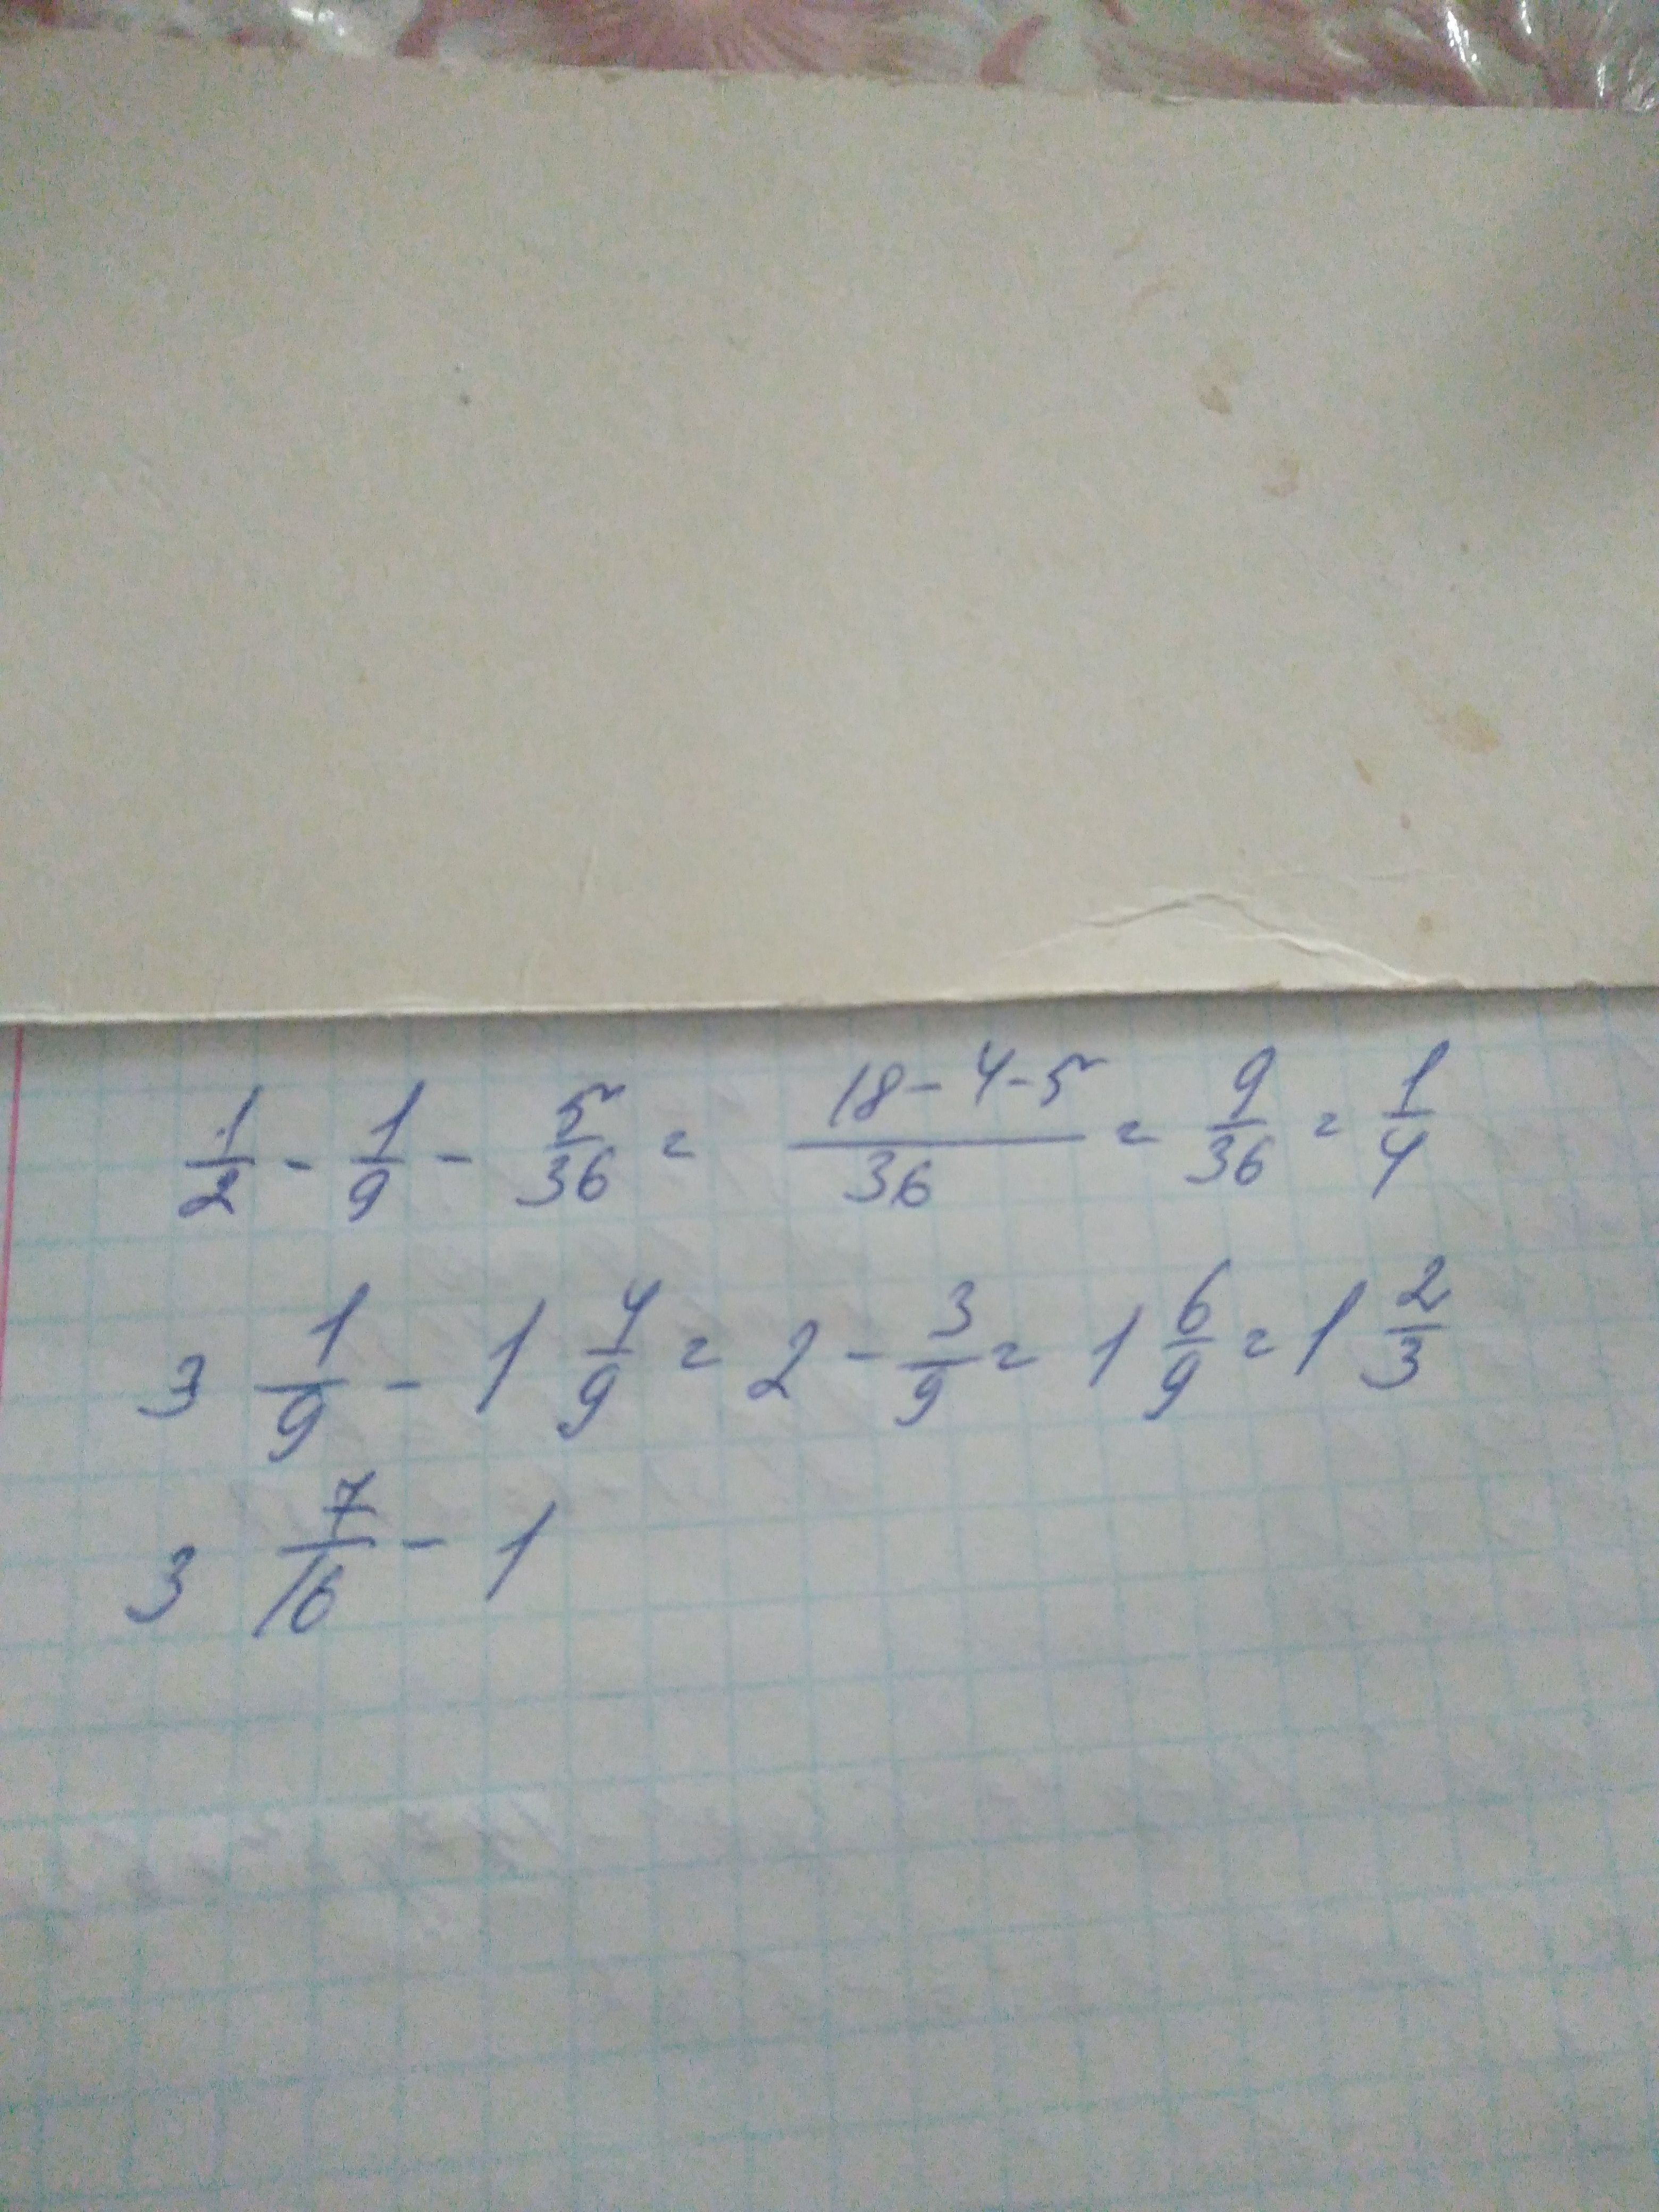 1/2 - 1/9 - 5/36 = (18-4-5)/36 = 9/36 = 1/4
3 1/9 - 1 4/9 = 2 - 3/9 = 1 6/9 = 1 2/3
3 7/16 - 1